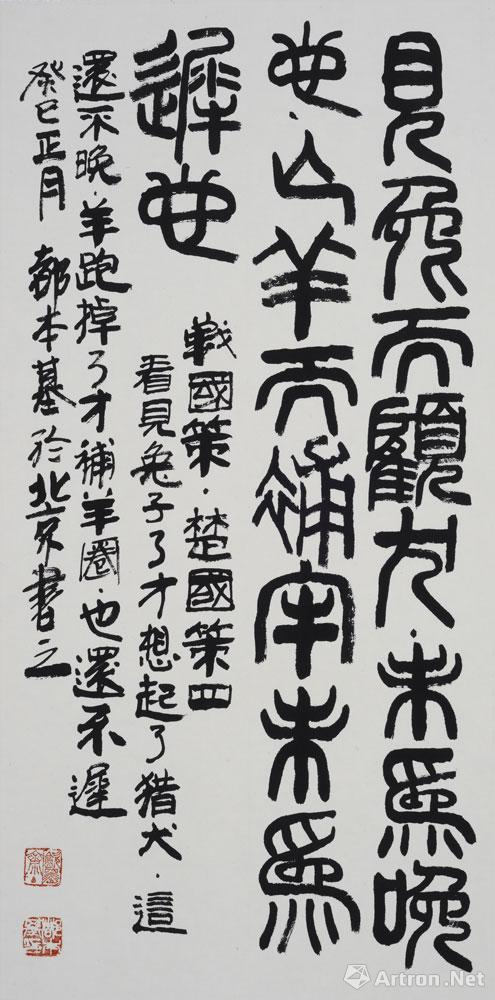 見兔而顧犬·未爲晚
也·亡羊而補牢未爲
遲也
戰國策·楚國策四
看見兔子了才想起了猎犬·這
還不晚·羊跑掉了才補羊圈·也還不遲
癸巳正月 都本基於北京書之
雅昌艺术网
Artron.Net